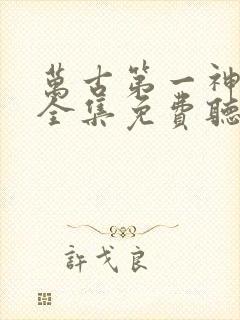 萬古第一神
全集免費聽
許戈良